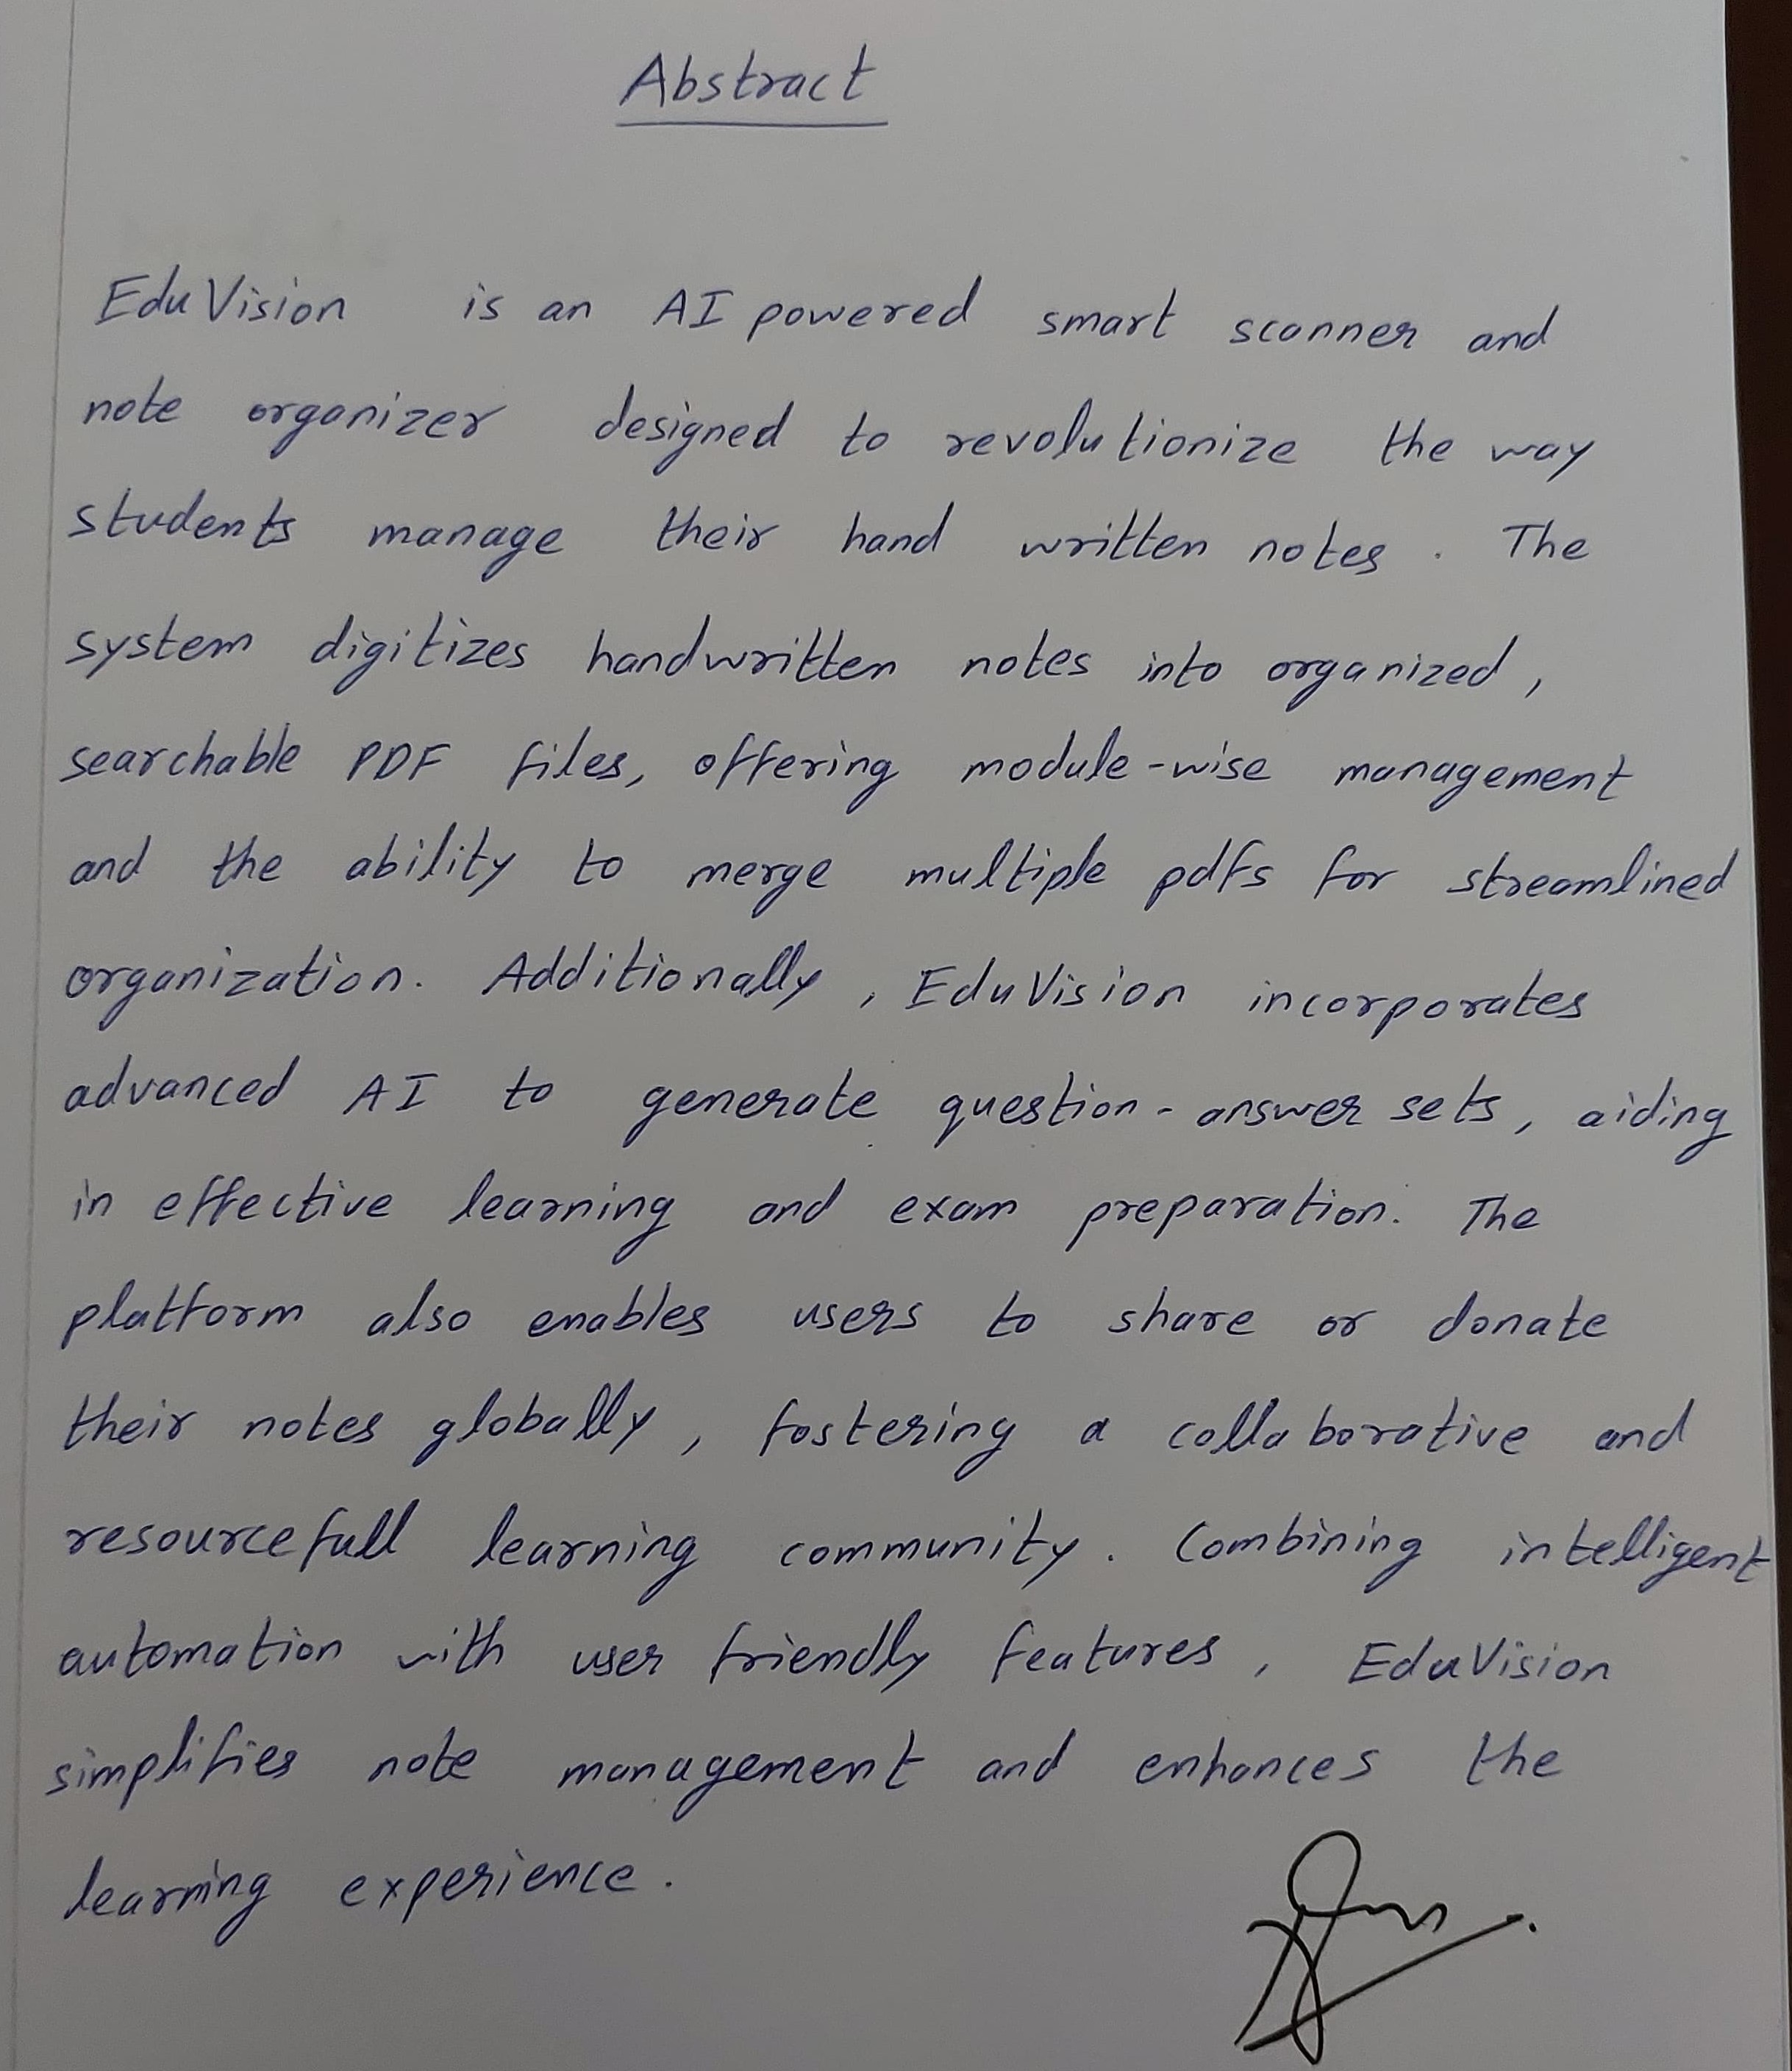 Abstract
EduVision is an AI powered smart scanner and
note organizer designed to revolutionize the way
students manage their hand written notes. The
system digitizes handwritten notes into organized,
searchable PDF files, offering module-wise management
and the ability to merge multiple pdfs for streamlined
organization. Additionally, EduVision incorporates
advanced AI to generate question-answer sets, aiding
in effective learning and exam preparation. The
platform also enables users to share or donate
their notes globally, fostering a collaborative and
resourcefull learning community. Combining intelligent
automation with user friendly features, EduVision
simplifies note management and enhances the
learning experience.